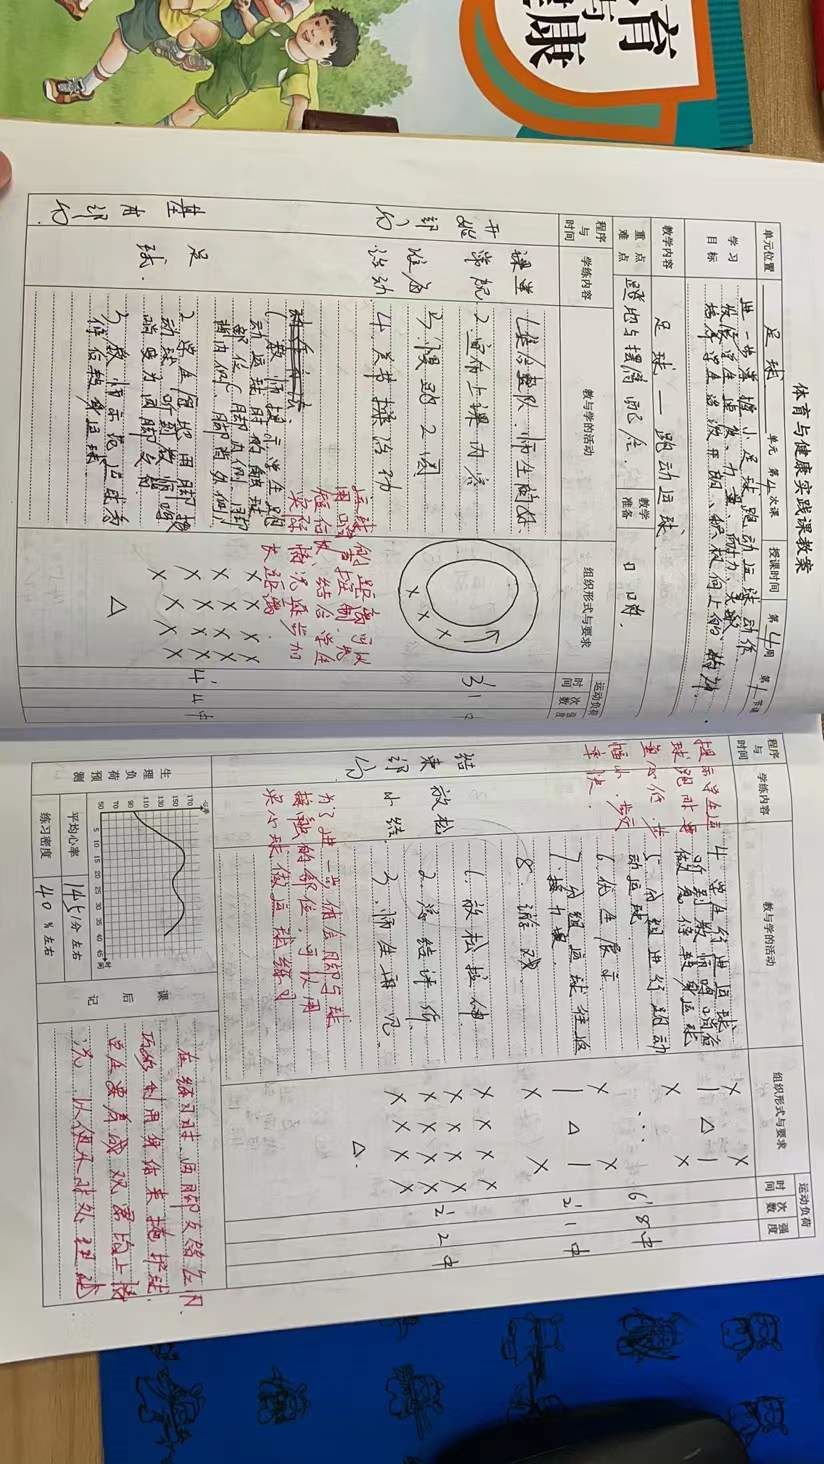 体育与健康实践课教案
单元位置 足球 单元 第4次课 授课时间 第4周 第1节课
学习目标
进一步掌握小足球跑动运球动作
发展学生速度、力量、耐力、灵敏
培养学生活泼开朗、积极向上的精神.
教学内容 足球—跑动运球.
重点难点 蹬地与摆腾配合. 教学准备 口哨.
程序与时间 学练内容 教与学的活动 组织形式与要求 运动负荷
时间 次数 强度
开始部分
课堂常规
准备活动
1.集合整队.师生问好.
2.宣布上课内容
3.慢跑2圈
4.关节操活动
3' 1 中
运球的距离可以
用哨声控制.先
短后长.结合学生
实际情况逐步加
长距离.
基本部分
足球.
动作方法
1.教师提示学生跑
动运球时的触球
部位(脚内侧.脚
背内侧.脚背外侧)
2.学生原地用脚拨
动球.听到教师鸣
哨变为两脚交替.
3.教师示范运球考
停后转身运球.
4' 4 中
程序与时间 学练内容 教与学的活动 组织形式与要求 运动负荷
时间 次数 强度
提示学生运
球跑时要
重心低.步
幅小.步频
率快.
4.学生行进运球
听到教师鸣哨后
做急停转身运球
5.分组进行跑动
动运球
6.优生展示
7.分组运球往返
接力赛.
8.游戏.
6' 8 中
2' 1 中
结束部分
放松
小结.
1.放松拉伸.
2.总结评价.
3.师生再见.
2' 2 中
为了进一步体会脚与球
接触的部位.可以用
实心球做运球练习
生理负荷预测
170
150
130
110
90
70
50
5 10 15 20 25 30 35 40 45 时间
平均心率 145/分 左右
练习密度 40 % 左右
课后记
在练习时.两脚交替运用.
巧妙利用身体来掩护球.
学生要养成观察场上情
况.以便不时处理球.
育
与
健康